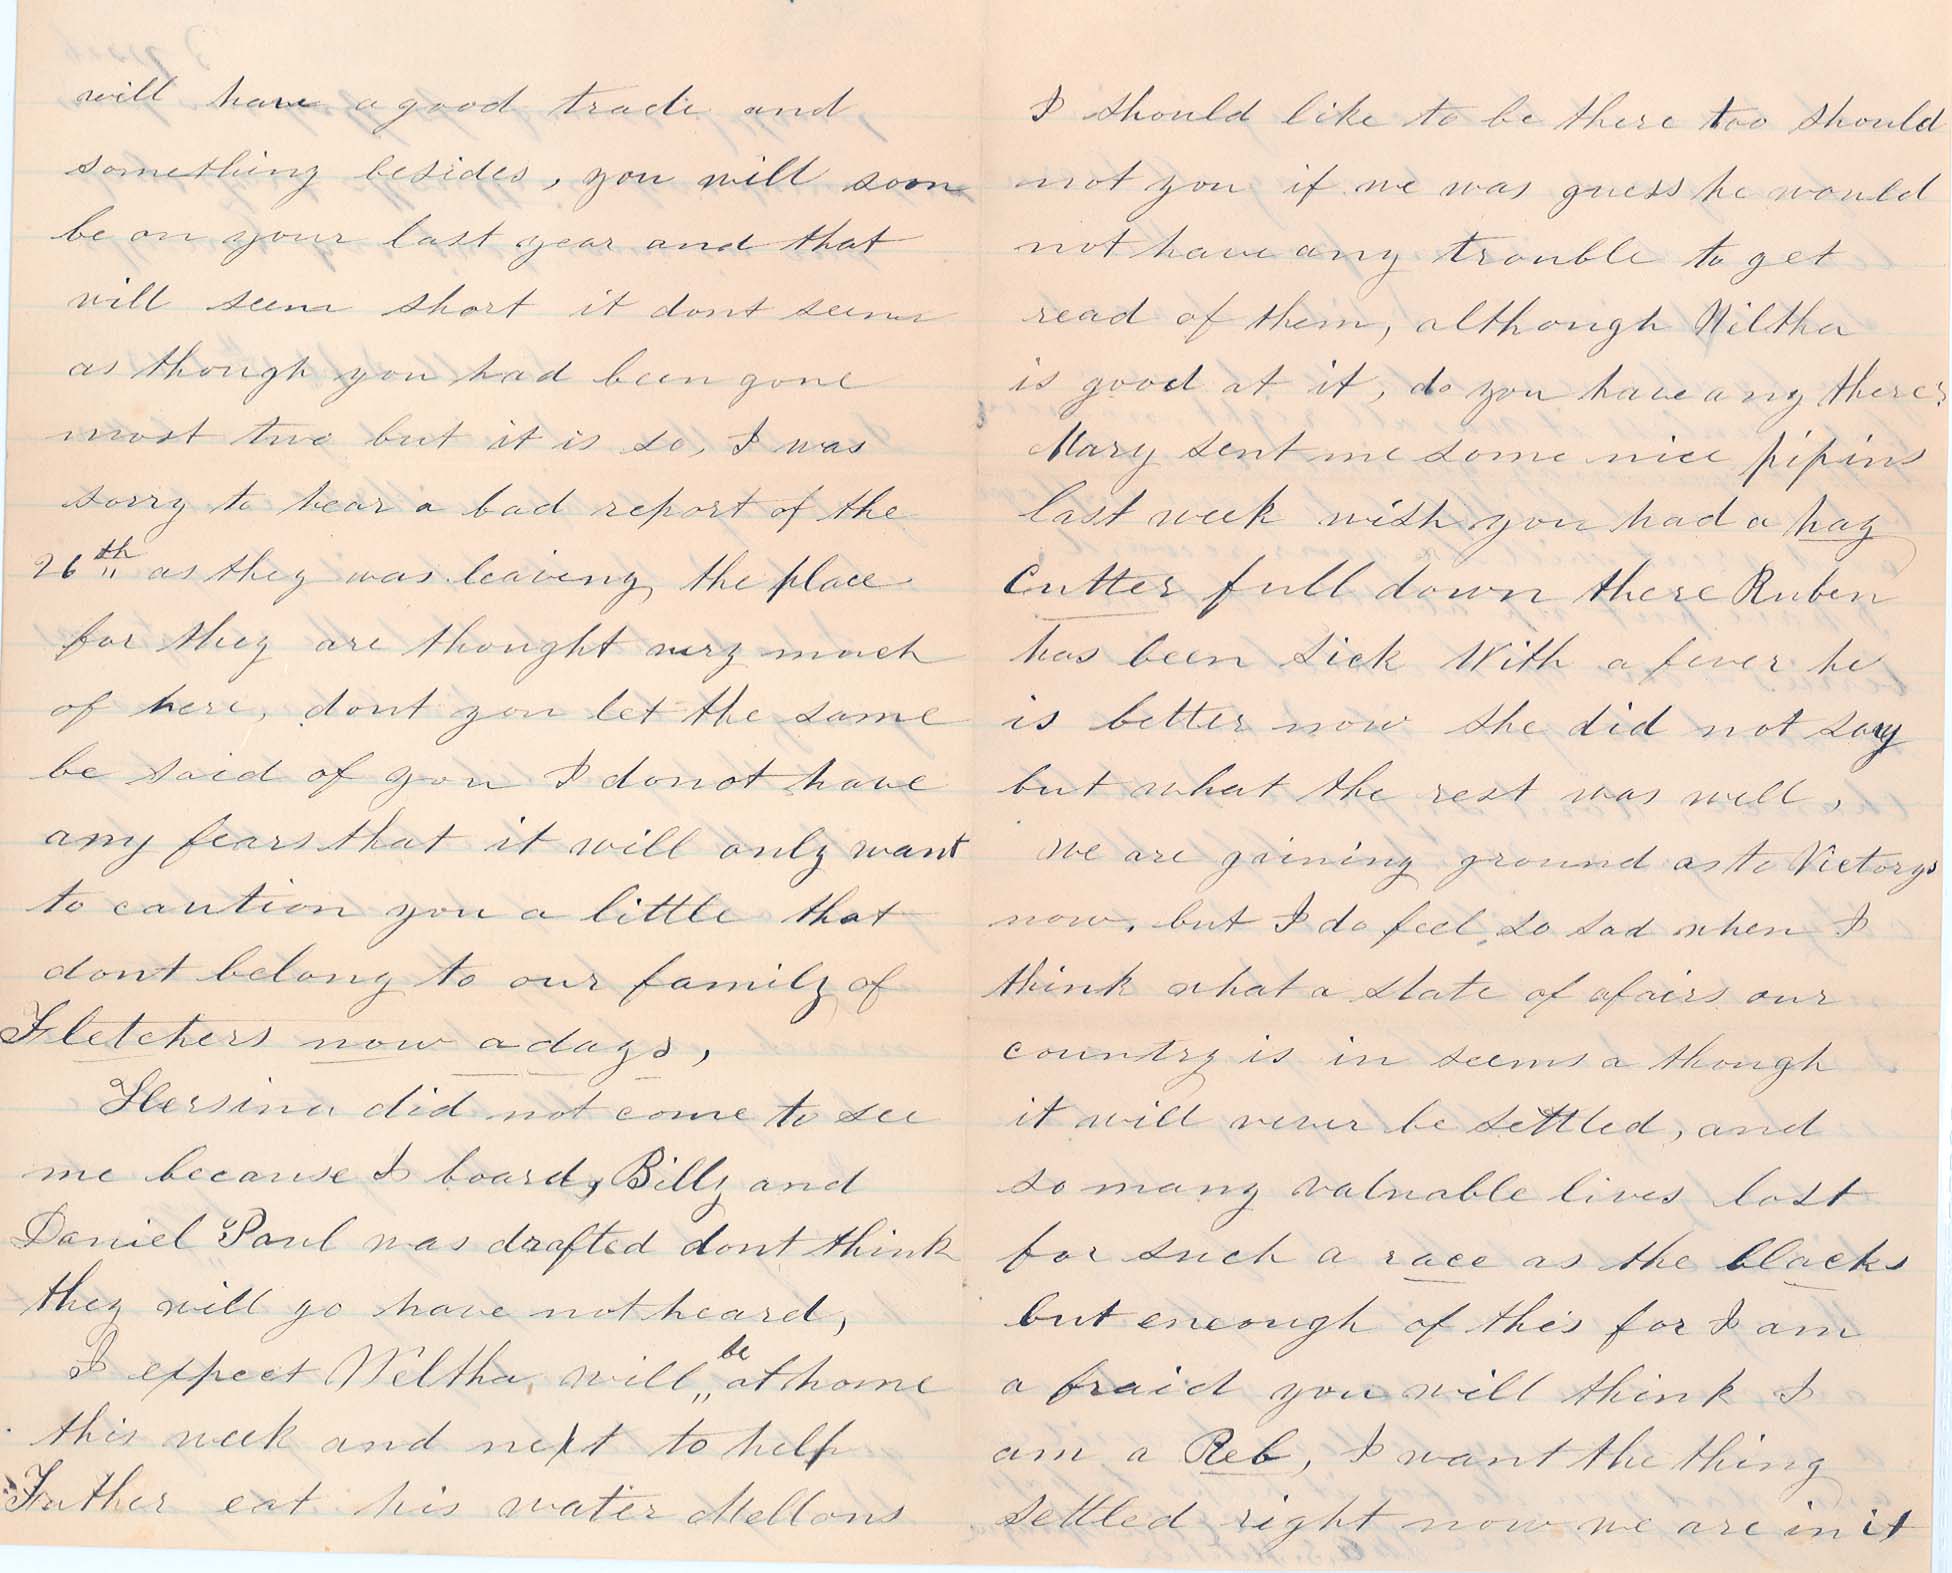 will have a good trade and
something besides, you will soon
be on your last year and that
will seem short it dont seem
as though you had been gone
most two but it is so, I was
sorry to hear a bad report of the
26th as they was leaving the place
for they are thought very much
of here, dont you let the same
be said of you I do not have
any fears that it will only want
to caution you a little that
dont belong to our family of
Fletchers now a days,
Hersina did not come to see
me because I board, Billy and
Daniel Paul was drafted dont think
they will go have not heard,
I expect Wiltha will be at home
this week and next to help
Father eat his water Mellons
I should like to be there too should
not you if we was guess he would
not have any trouble to get
read of them, although Wiltha
is good at it, do you have any there?
Mary sent me some nice pipins
last week wish you had a hay
Cutter full down there Ruben
has been sick With a fever he
is better now she did not say
but what the rest was well,
we are gaining ground as to Victorys
now, but I do feel so sad when I
think what a state of afairs our
country is in seems a though
it will never be settled, and
so many valuable lives lost
for such a race as the blacks
but eneough of this for I am
a fraid you will think I
am a Reb, I want the thing
settled right now we are in it